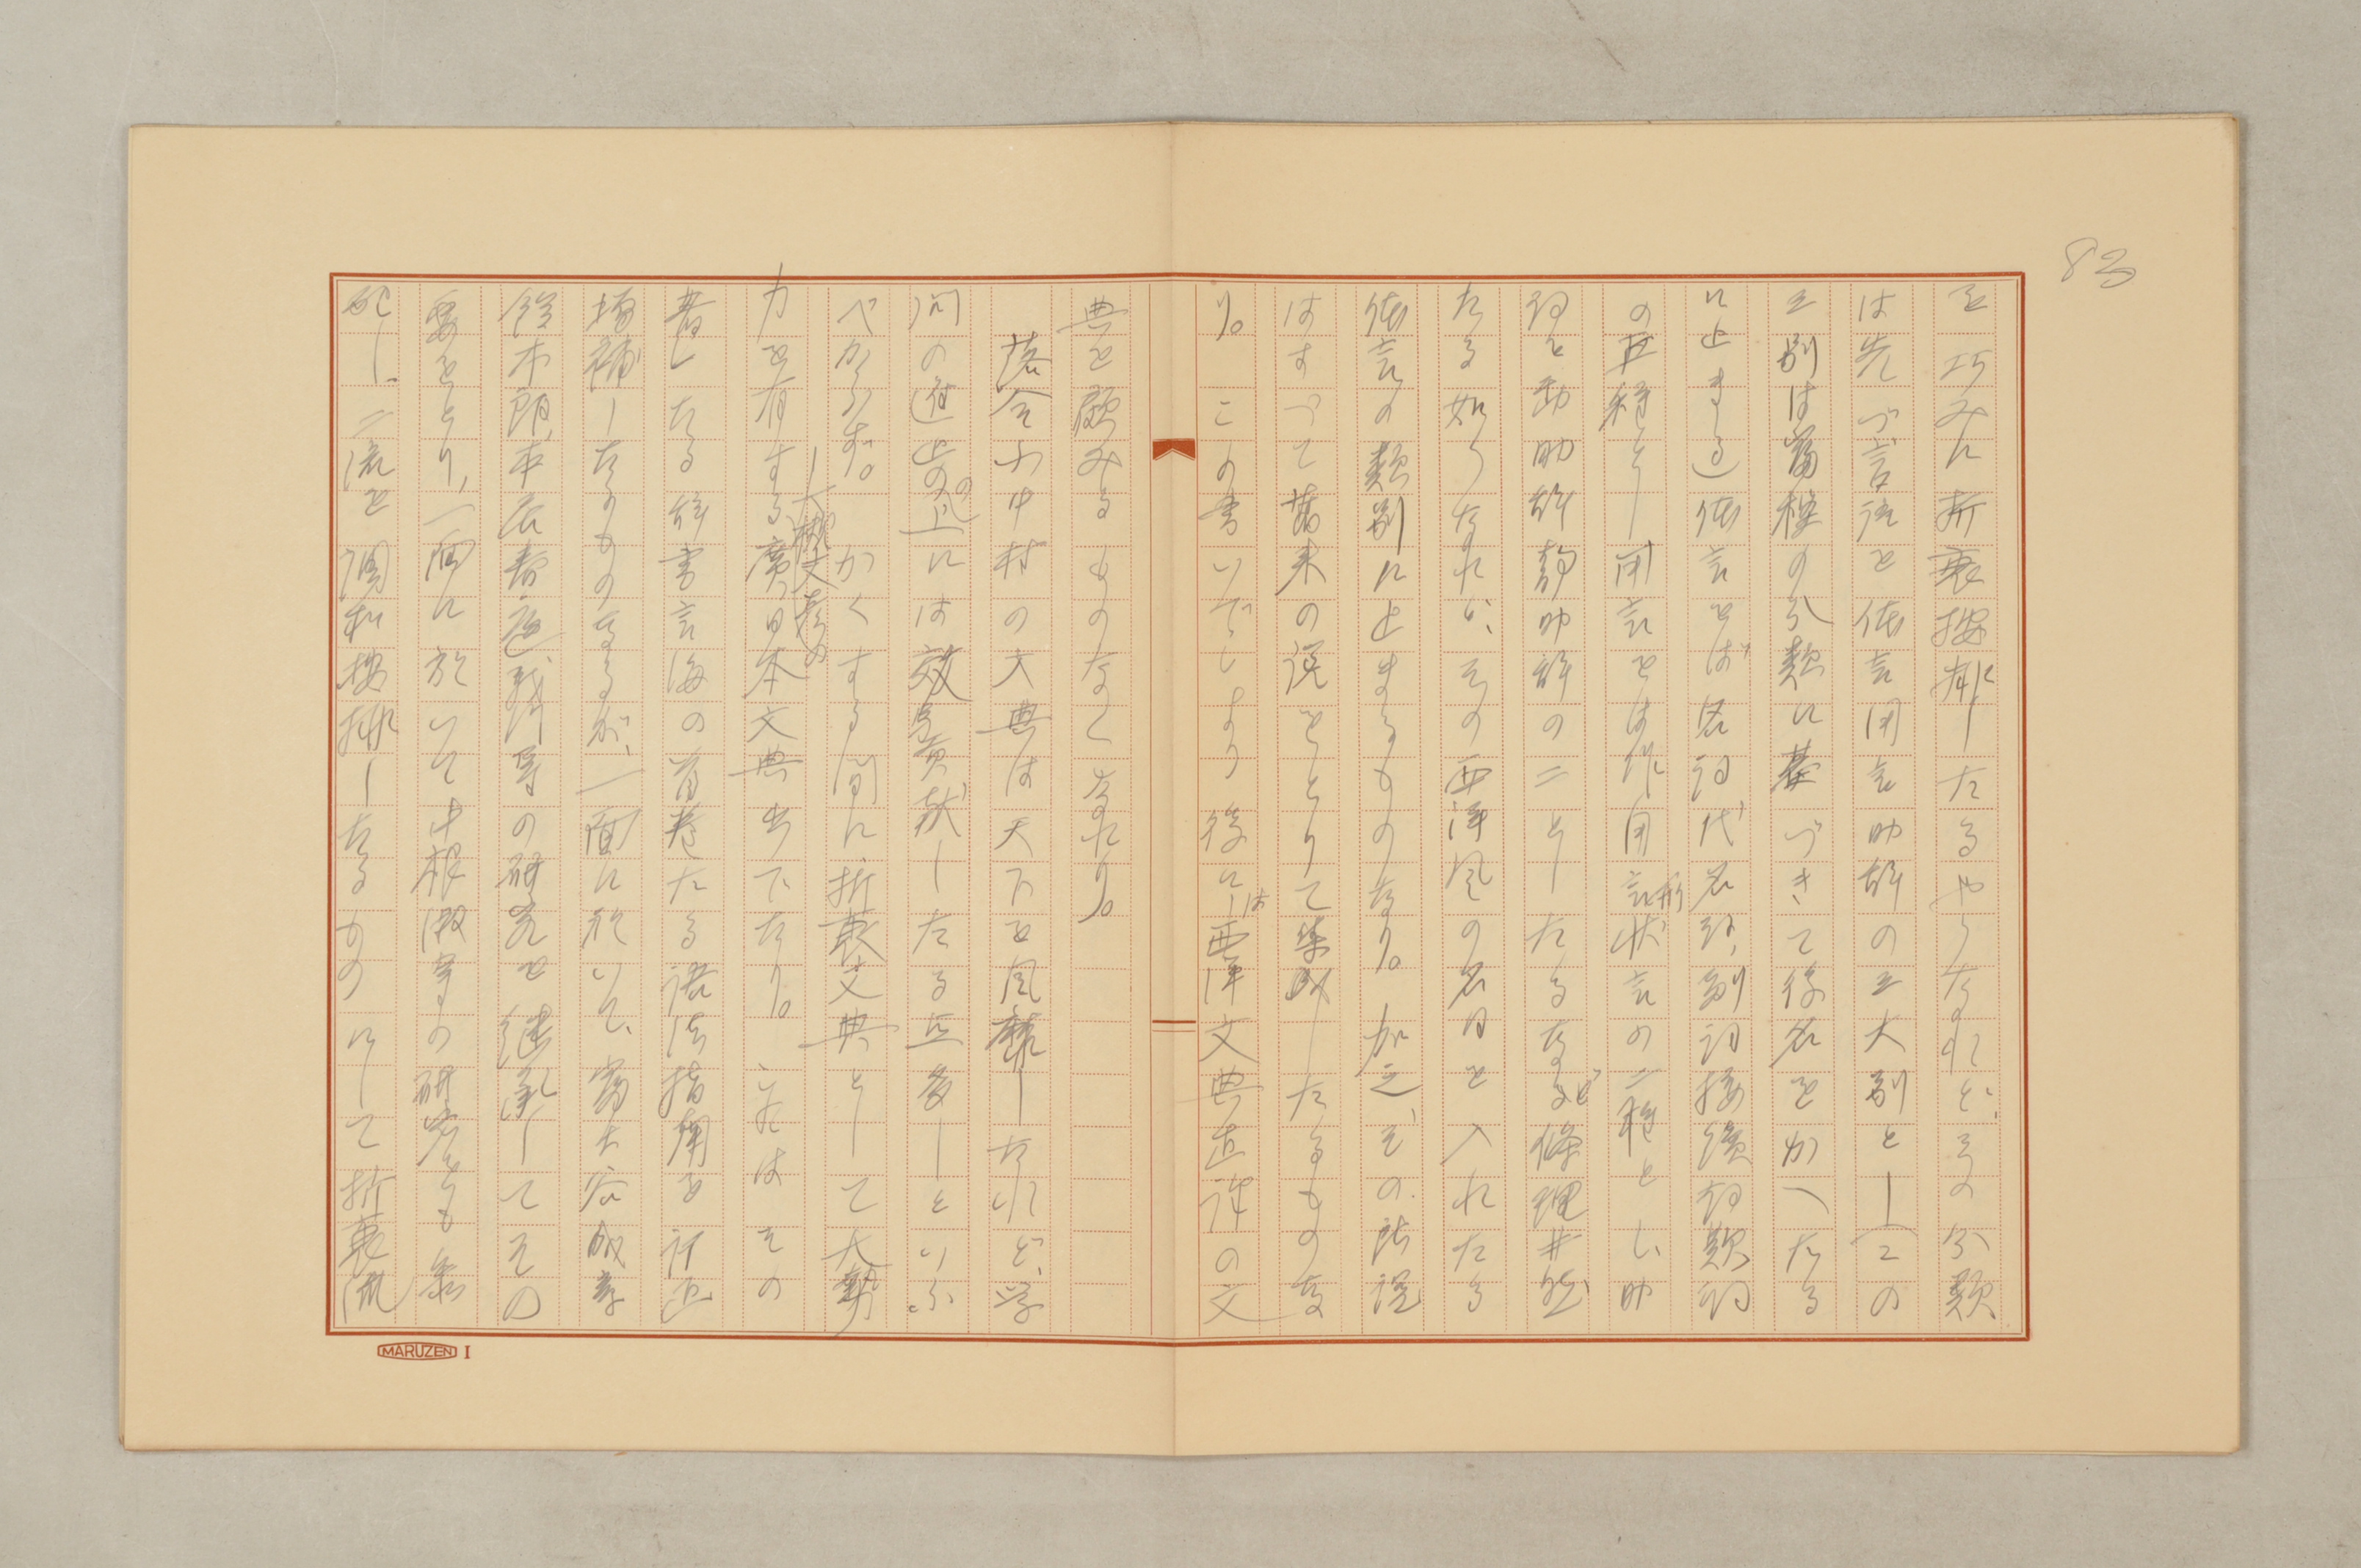 83
を巧みに折衷按排したるやうなれど、その分類
は先づ言語を体言用言助辞の三大別とし(この
三別は富樫の分類に基づきて仮名をかへたる
に止まる)体言をば名詞代名詞、副詞接続詞歎詞
の五種とし用言をは作用言形状言の二種とし、助
詞を動助辞静助辞の二としたるなど條理井然
たる如くなれど、その西洋風の名目を入れたる
体言の類別に止まるものなり。加之、その所説
はすべて舊来の説をとりて集成したるものな
り。この書いでしより後には西洋文典直訳の文
典を顧みるものなくなれり。
落合小中村の文典は天下を風靡したれど、学
問の進歩の上には效果貢献したる点多しといふ
べからず。かくする間に折衷文典として大勢
力を有する大槻文彦の廣日本文典出でたり。これはその
著したる辞書言海の首巻たる語法指南を訂正
増補したるものなるが、一面に於いて、富士谷成章
鈴木朖、本居春庭、義門等の研究を継承してその
要をとり、一面に於いて中根淑等の研究をも参
照し、二流を調和按排したるものにして折衷流
MARUZEN I